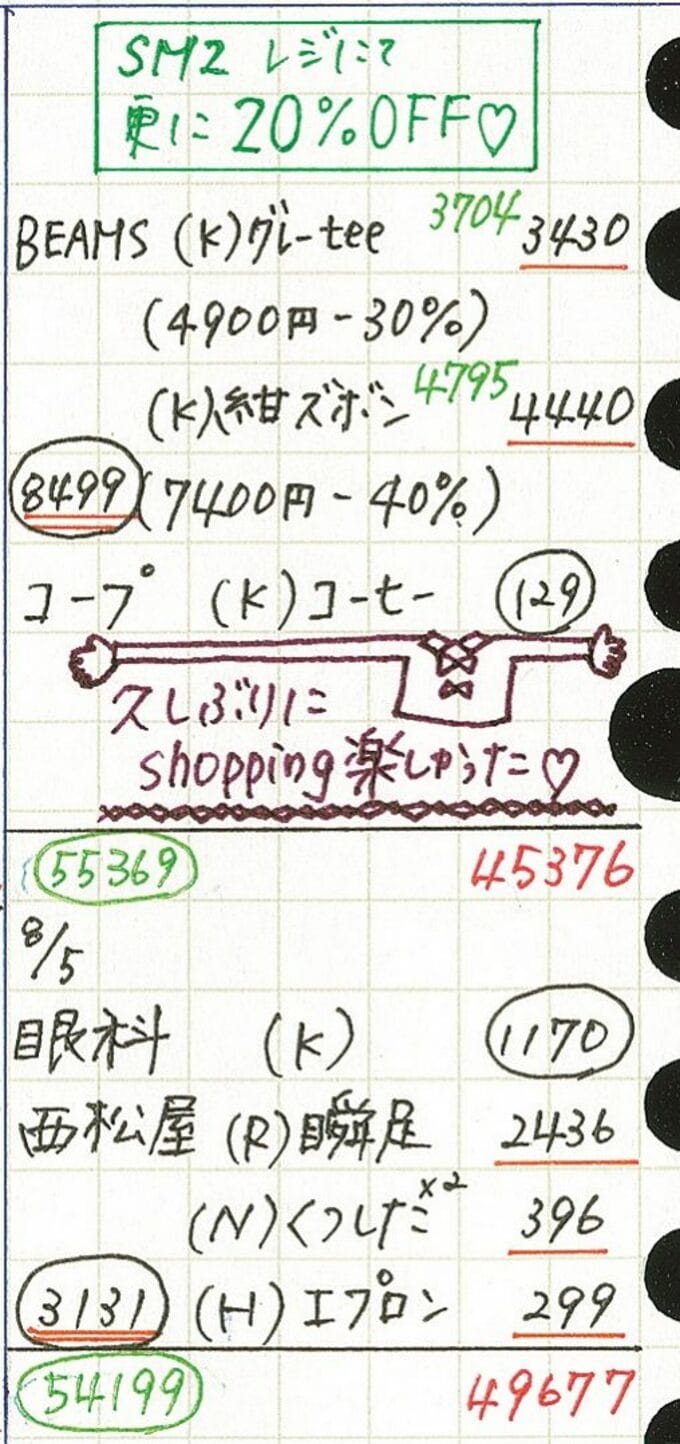 SM2 レジにて
更に 20%OFF♡
BEAMS (K)グレーtee 3704 3430
(4900円-30%)
(K)紺ズボン 4795 4440
8499 (7400円-40%)
コープ (K)コーヒー 129
久しぶりに
shopping楽しかった♡
55369 45376
8/5
眼科 (K) 1170
西松屋 (R)瞬足 2436
(N)くつした×2 396
3131 (H)エプロン 299
54199 49677